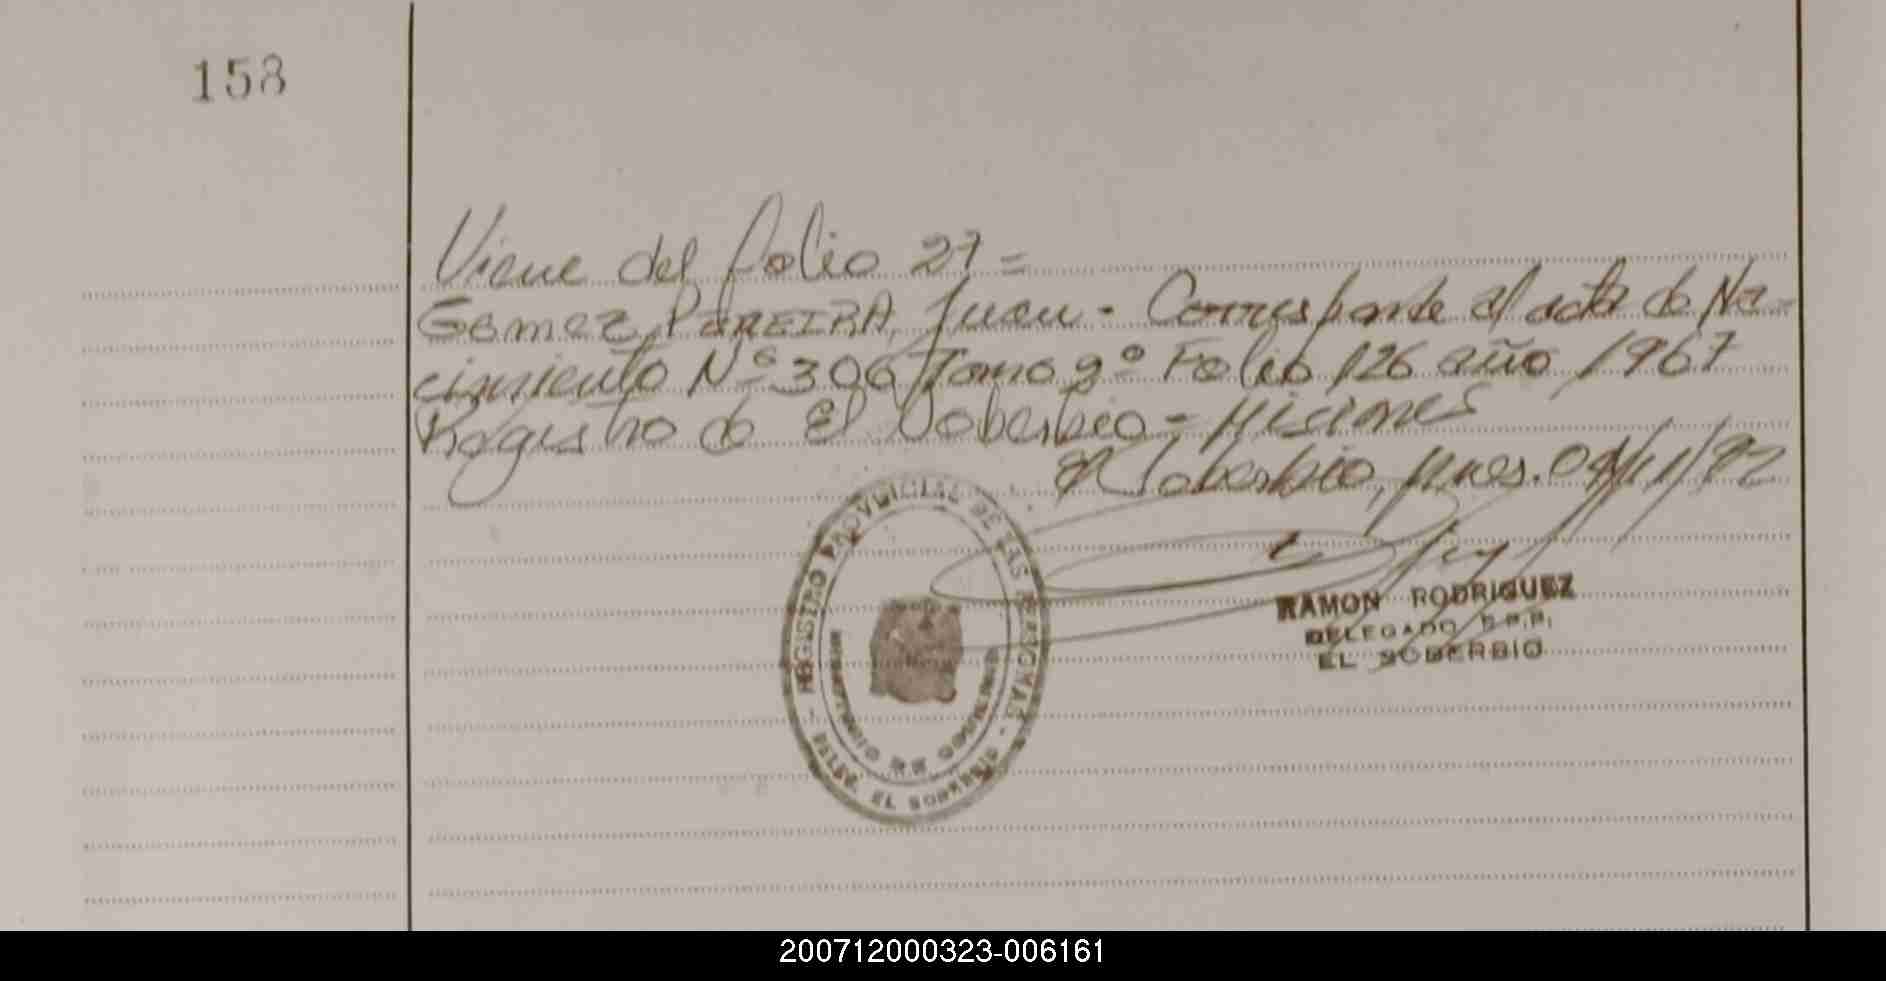 158
Viene del folio 27 =
Gomez PEREIRA, Juan - Corresponde al acta de Na-
cimiento Nº 306 Tomo 2º Folio 126 año 1967
Registro de El Soberbio - Misiones
El Soberbio, Mnes. 04/11/92
REGISTRO PROVINCIAL DE LAS PERSONAS
MINISTERIO DE GOBIERNO
- DELEG. EL SOBERBIO -
RAMON RODRIGUEZ
DELEGADO R.P.P.
EL SOBERBIO
200712000323-006161